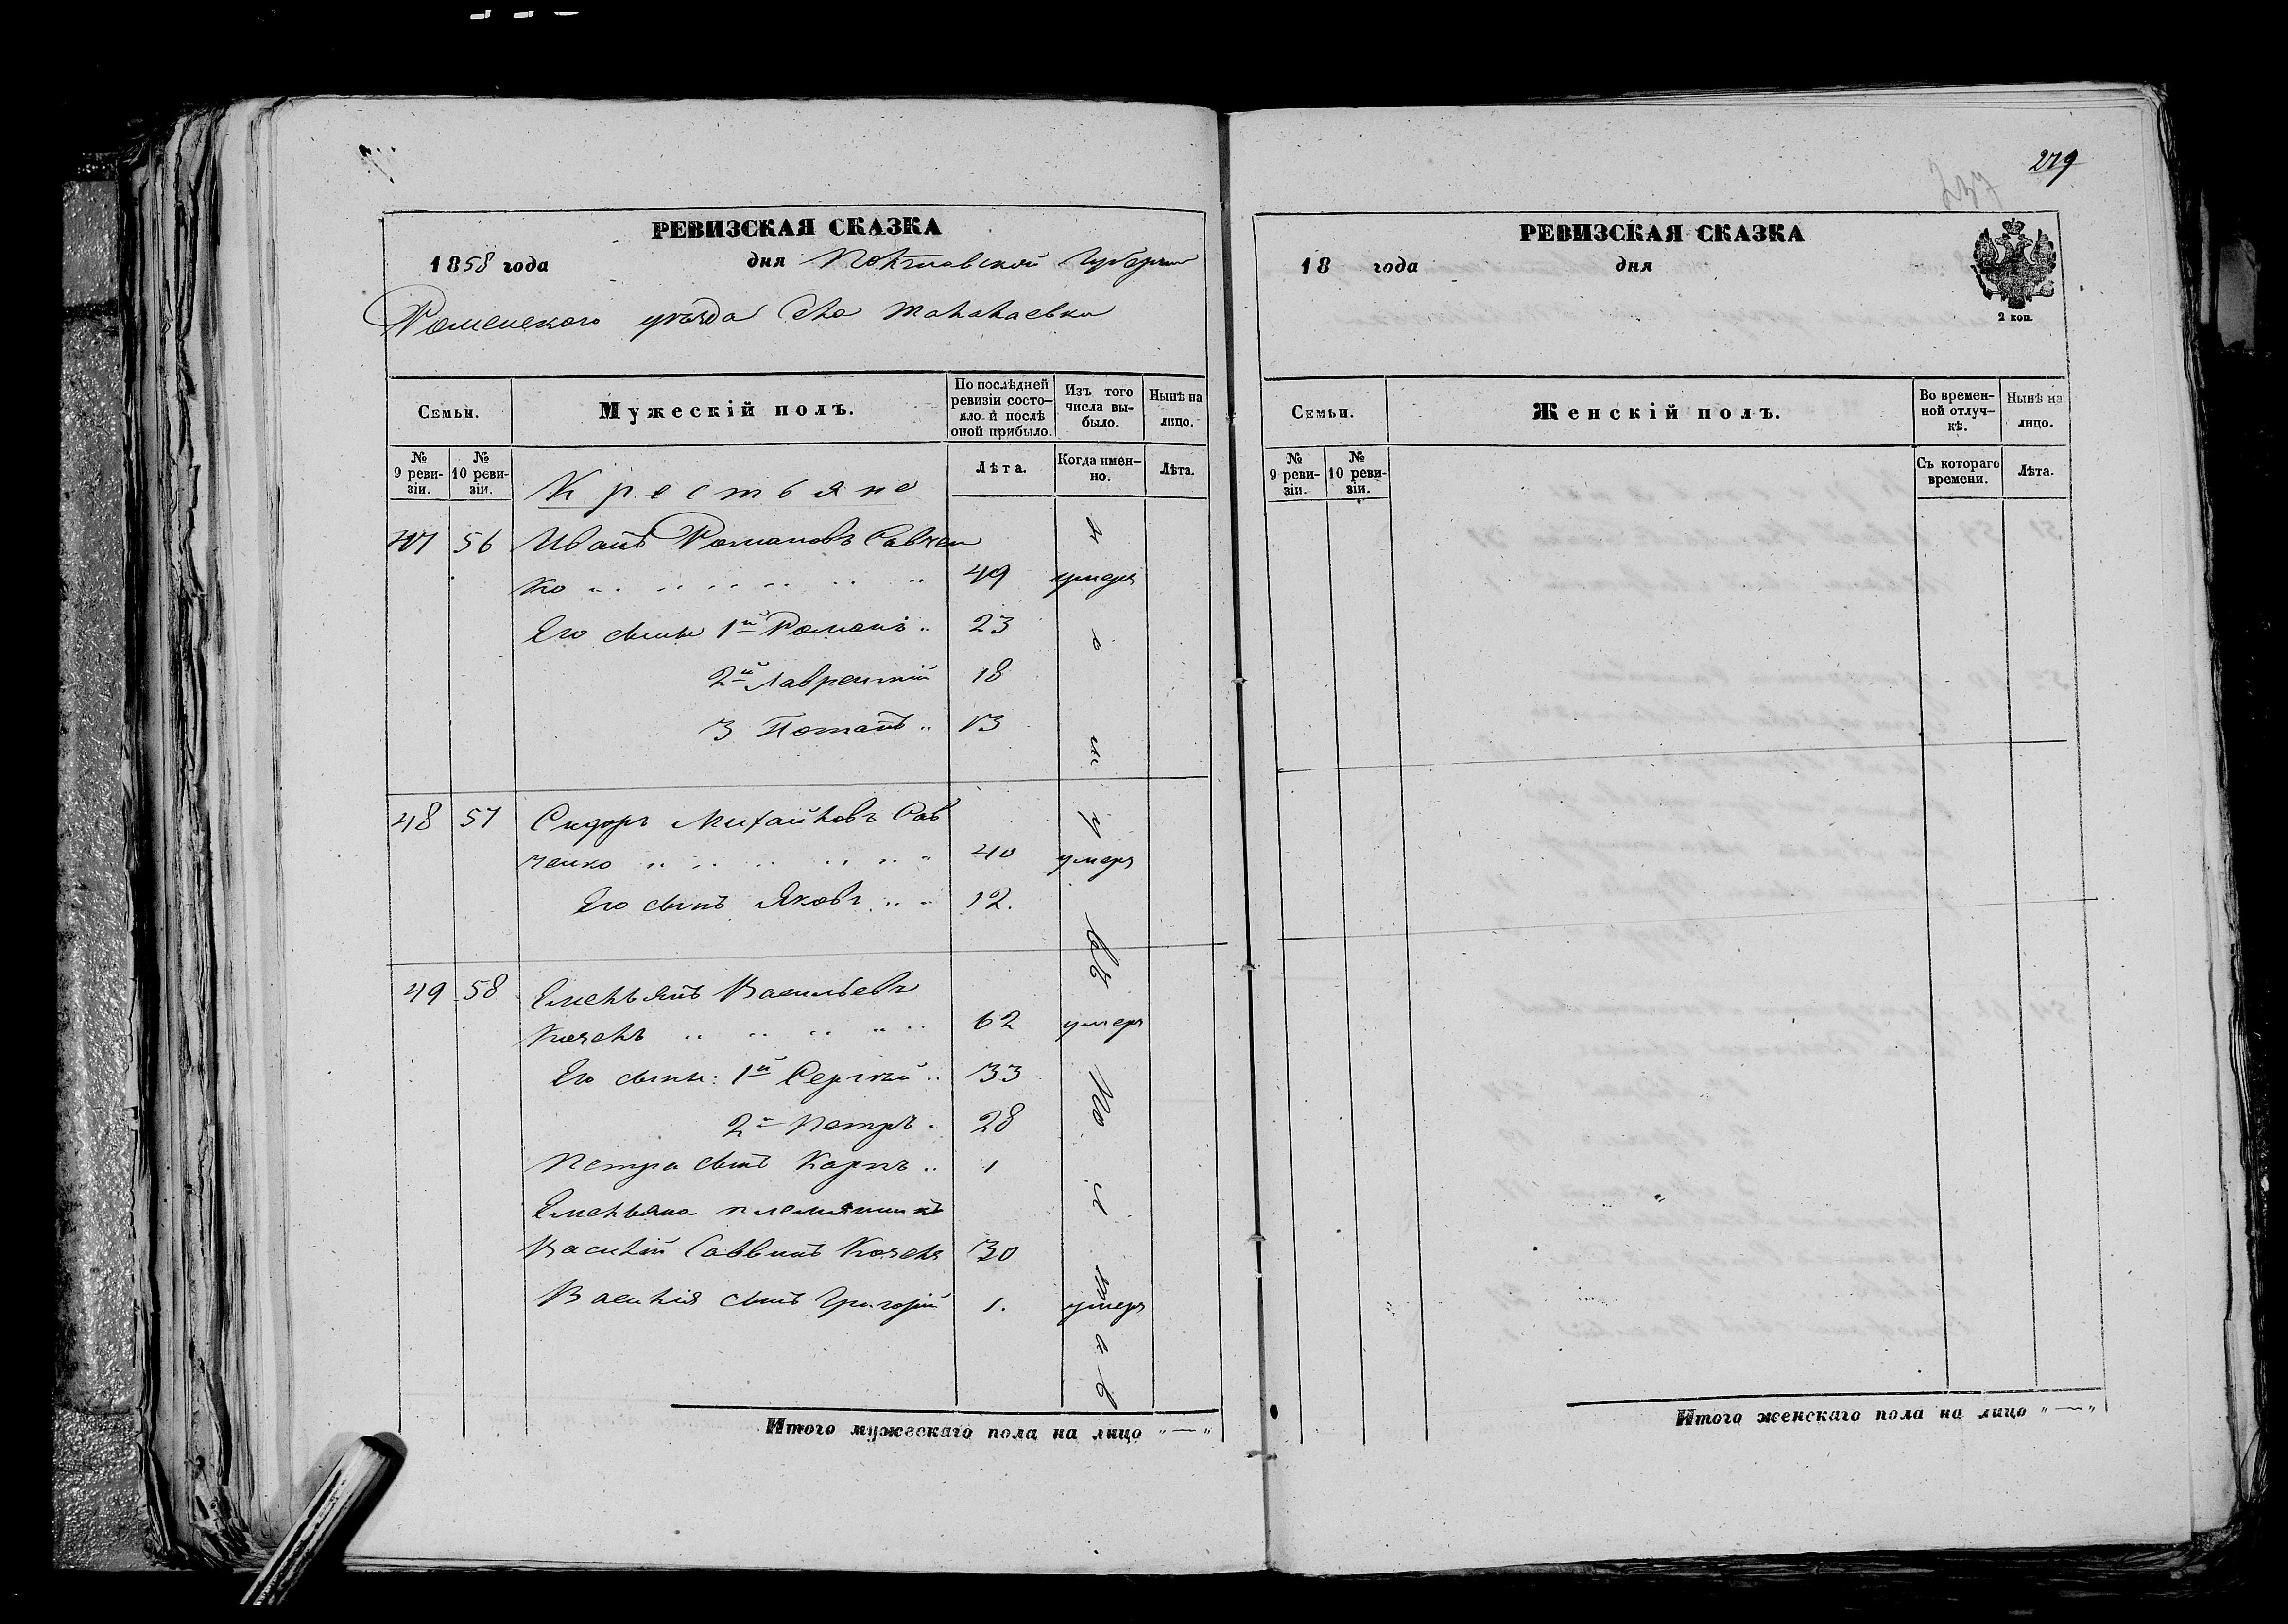 РЕВИЗСКАЯ СКАЗКА
1858 года дня Полтавской Губернии
Роменского уѣзда Села Талалаевки
Семьи.
Мужескій полъ.
По послѣдней ревизіи состояло и послѣ оной прибыло.
Изъ того числа выбыло.
Нынѣ на лицо.
№ 9 ревизіи.
№ 10 ревизіи.
Лѣта.
Когда именно.
Лѣта.
Крестьяне
47 56 Иванъ Романовъ Савчен
ко 49 умеръ
Его сыны 1й Романъ 23
2й Лаврентій 18
3 Потапъ 13
48 57 Сидоръ Михайловъ Сав
ченко 40 умеръ
Его сынъ Яковъ 12.
49 58 Емельянъ Васильевъ
62 умеръ
Его сыны: 1й Сергѣй 33
2й Петръ 28
Петра сынъ Карпъ 1
Емельяна племянникъ
Василій Саввинъ 30
Василія сынъ Григорій 1. умеръ
Итого мужескаго пола на лицо „—„
279
237
РЕВИЗСКАЯ СКАЗКА
18 года дня
2 коп.
Семьи.
Женскій полъ.
Во временной отлучкѣ.
Нынѣ на лицо.
№ 9 ревизіи.
№ 10 ревизіи.
Съ котораго времени.
Лѣта.
Итого женскаго пола на лицо „—„